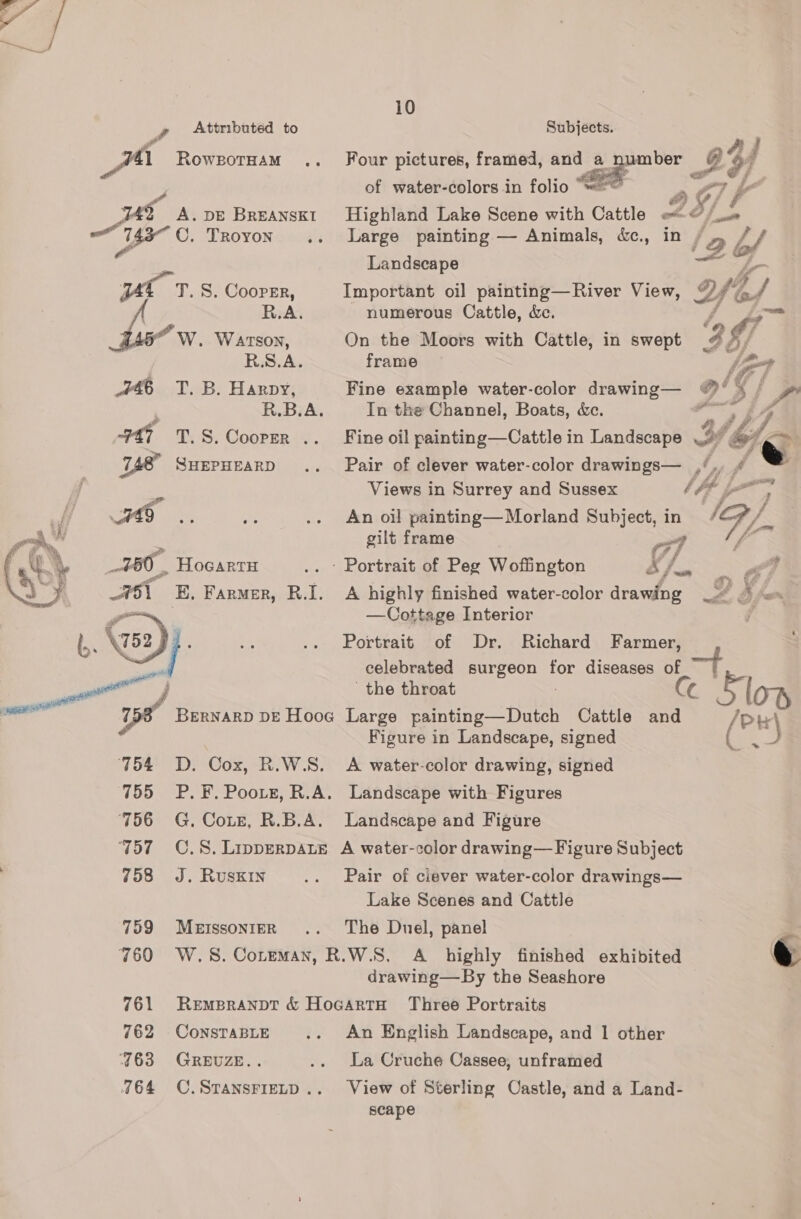 10
Attributed to Subjects.
741 ROWBOTHAM .. Four pictures, framed, and a number
of water-colors in folio
742 A. DE BREANSKI Highland Lake Scene with Cattle
743 C. TROYON .. Large painting — Animals, &c., in
Landscape
744 T. S. COOPER, Important oil painting—River View,
R.A. numerous Cattle, &c.
745 W. WATSON, On the Moors with Cattle, in swept
R.S.A. frame
746 T. B. HARDY, Fine example water-color drawing—
R.B.A. In the Channel, Boats, &c.
747 T. S. COOPER .. Fine oil painting—Cattle in Landscape
748 SHEPHEARD .. Pair of clever water-color drawings—
Views in Surrey and Sussex
749 .. .. .. An oil painting—Morland Subject, in
gilt frame
750 HOGARTH .. Portrait of Peg Woffington
751 E. FARMER, R.I. A highly finished water-color drawing
—Cottage Interior
752 .. .. Portrait of Dr. Richard Farmer,
celebrated surgeon for diseases of
the throat
753 BERNARD DE HOOG Large painting—Dutch Cattle and
Figure in Landscape, signed
754 D. COX, R.W.S. A water-color drawing, signed
755 P. F. POOLE, R.A. Landscape with Figures
756 G. COLE, R.B.A. Landscape and Figure
757 C. S. LIDDERDALE A water-color drawing—Figure Subject
758 J. RUSKIN .. Pair of clever water-color drawings—
Lake Scenes and Cattle
759 MEISSONIER .. The Duel, panel
760 W. S. COLEMAN, R.W.S. A highly finished exhibited
drawing—By the Seashore
761 REMBRANDT & HOGARTH Three Portraits
762 CONSTABLE .. An English Landscape, and 1 other
763 GREUZE.. .. La Cruche Cassee, unframed
764 C. STANSFIELD .. View of Sterling Castle, and a Land-
scape